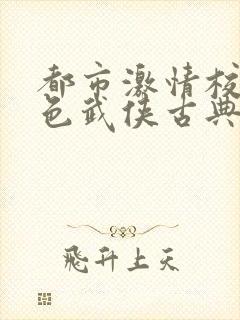 都市激情校
色武侠古典
飛升上天